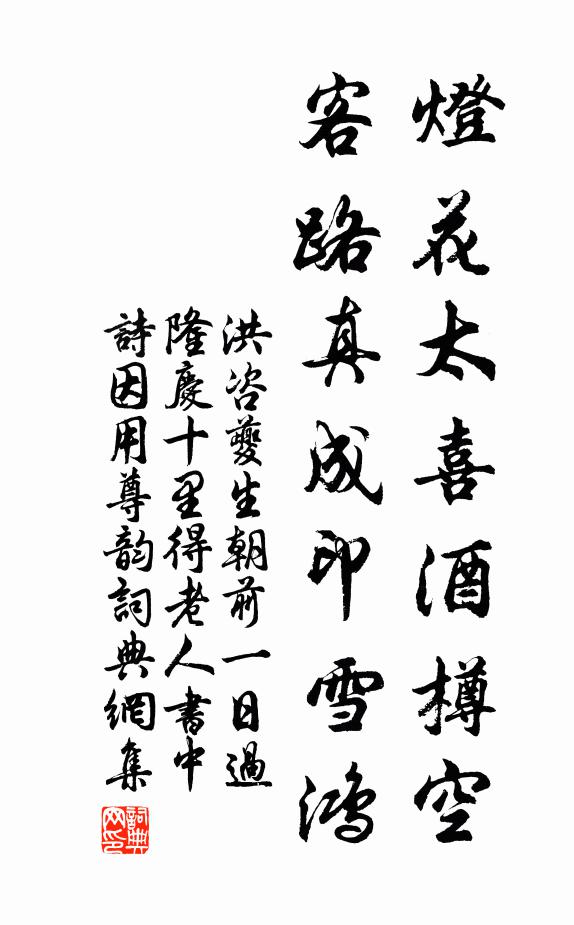 燈花太喜酒樽空
客路真成印雪鴻
洪咨夔生朝前一日過
隆慶十里得老人書中
詩因用尊韵詞典網集
詞典
网印